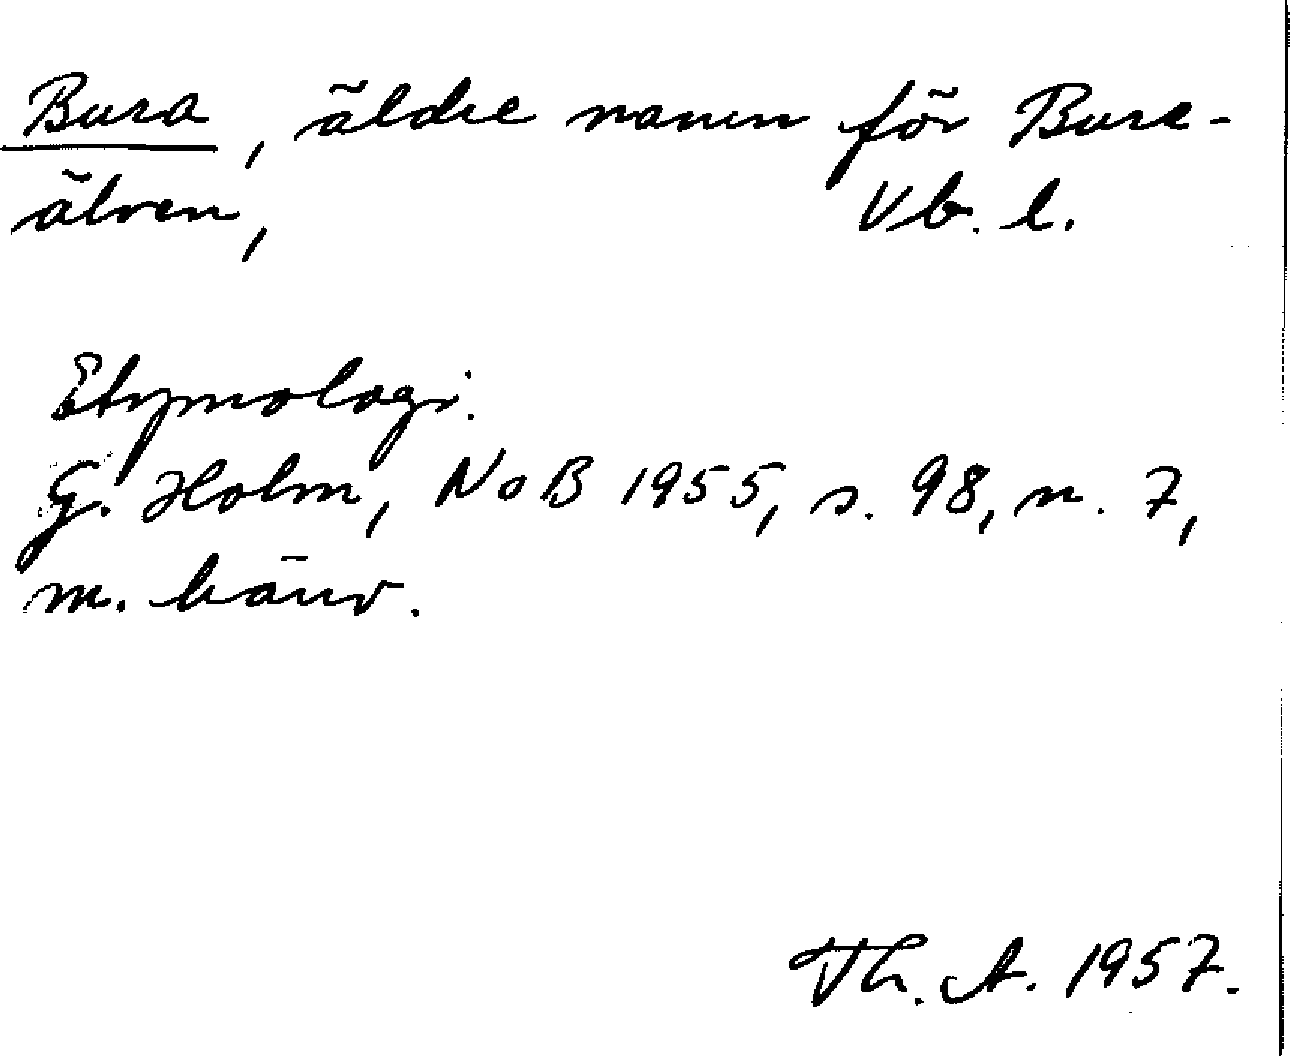 Bura, äldre namn för Bure-
älven, Vb. l.
Etymologi.
G. Holm, NoB 1955, s. 98, n. 7,
m. hänv.
Th. A. 1957.